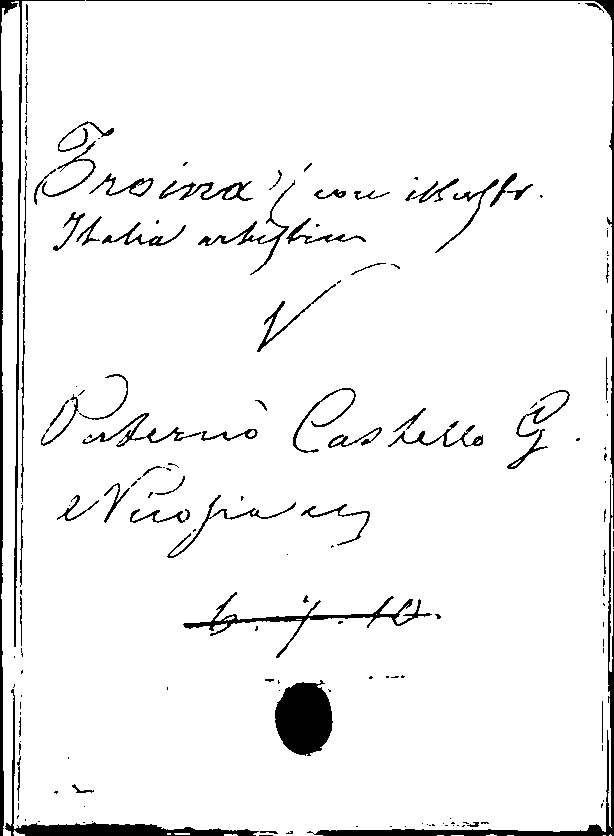 Troina; con illustr.
Italia artistica
V
Paternò Castello G.
e Nicosia
6. 7. 10.